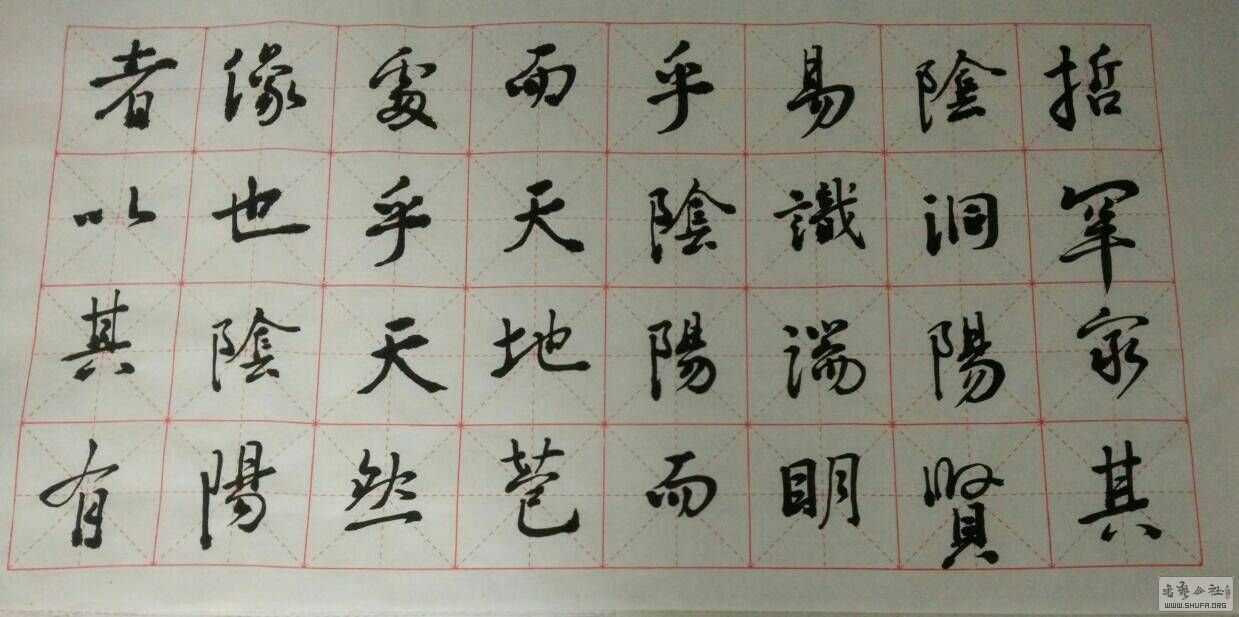 者以其有
像也陰陽
處乎天然
而天地苞
乎陰陽而
易識端明
陰洞陽賢
哲罕窮其
書藝公社
WWW.SHUFA.ORG